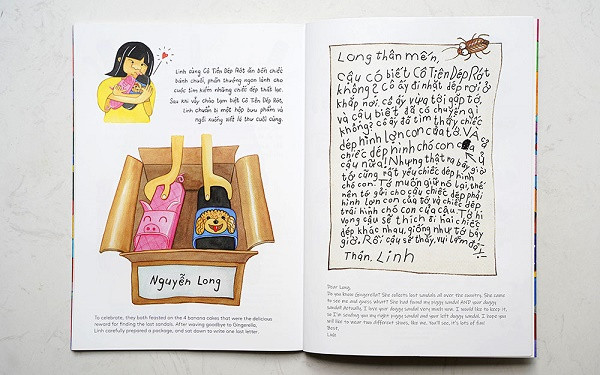 Linh cùng Cô Tiên Dép Rớt ăn đến chiếc
bánh chuối, phần thưởng ngon lành cho
cuộc tìm kiếm những chiếc dép thất lạc.
Sau khi vẫy chào tạm biệt Cô Tiên Dép Rớt,
Linh chuẩn bị một hộp bưu phẩm và
ngồi xuống viết lá thư cuối cùng.
Nguyễn Long
To celebrate, they both feasted on the 4 banana cakes that were the delicious
reward for finding the last sandals. After waving goodbye to Gingerella,
Linh carefully prepared a package, and sat down to write one last letter.
Long thân mến,
Cậu có biết Cô Tiên Dép Rớt
không? Cô ấy đi nhặt dép rơi ở
khắp nơi. Cô ấy vừa tới gặp tớ,
và cậu biết đã có chuyện gì
không? Cô ấy đã tìm thấy chiếc
dép hình lợn con của tớ. VÀ cả
chiếc dép hình chó con của
cậu nữa! Nhưng thật ra bây giờ
tớ cũng rất yêu chiếc dép hình
chó con. Tớ muốn giữ nó lại, thế
nên tớ gửi cho cậu chiếc dép phải
hình lợn con của tớ và chiếc dép
trái hình chó con của cậu. Tớ hi
vọng cậu sẽ thích đi hai chiếc
dép khác nhau, giống như tớ bây
giờ. Rồi cậu sẽ thấy, vui lắm đấy!
Thân, Linh
Dear Long,
Do you know Gingerella? She collects lost sandals all over the country. She came
to see me and guess what? She had found my piggy sandal AND your doggy
sandal! Actually, I love your doggy sandal very much now. I would like to keep it,
so I'm sending you my right piggy sandal and your left doggy sandal. I hope you
will like to wear two different shoes, like me. You'll see, it's lots of fun!
Best,
Linh